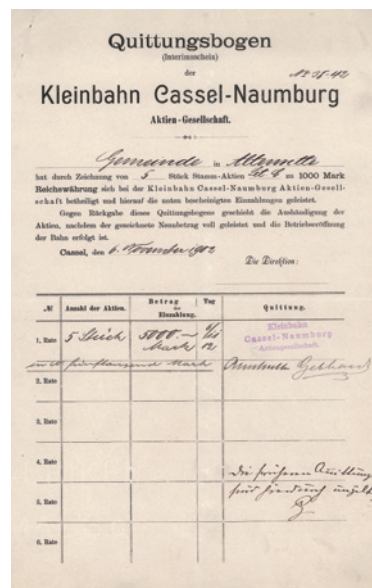 Quittungsbogen
(Interimsschein)
der
No 38-42
Kleinbahn Cassel-Naumburg
Aktien-Gesellschaft.
Gemeinde in Altenritte
hat durch Zeichnung von 5 Stück Stamm-Aktien Lit. zu 1000 Mark
Reichswährung sich bei der Kleinbahn Cassel-Naumburg Aktien-Gesell-
schaft betheiligt und hierauf die unten bescheinigten Einzahlungen geleistet.
Gegen Rückgabe dieses Quittungsbogens geschieht die Aushändigung der
Aktien, nachdem der gezeichnete Nennbetrag voll geleistet und die Betriebseröffnung
der Bahn erfolgt ist.
Cassel, den 6. November 1902
Die Direktion:
№ Anzahl der Aktien. Betrag der Einzahlung. Tag Quittung.
1. Rate 5 Stück 5000.- Mark
Kleinbahn
Cassel-Naumburg
Actiengesellschaft.
fünftausend Mark
Gebhard
2. Rate
3. Rate
4. Rate
Die früheren Quittungen
sind hierdurch ungült
5. Rate
6. Rate